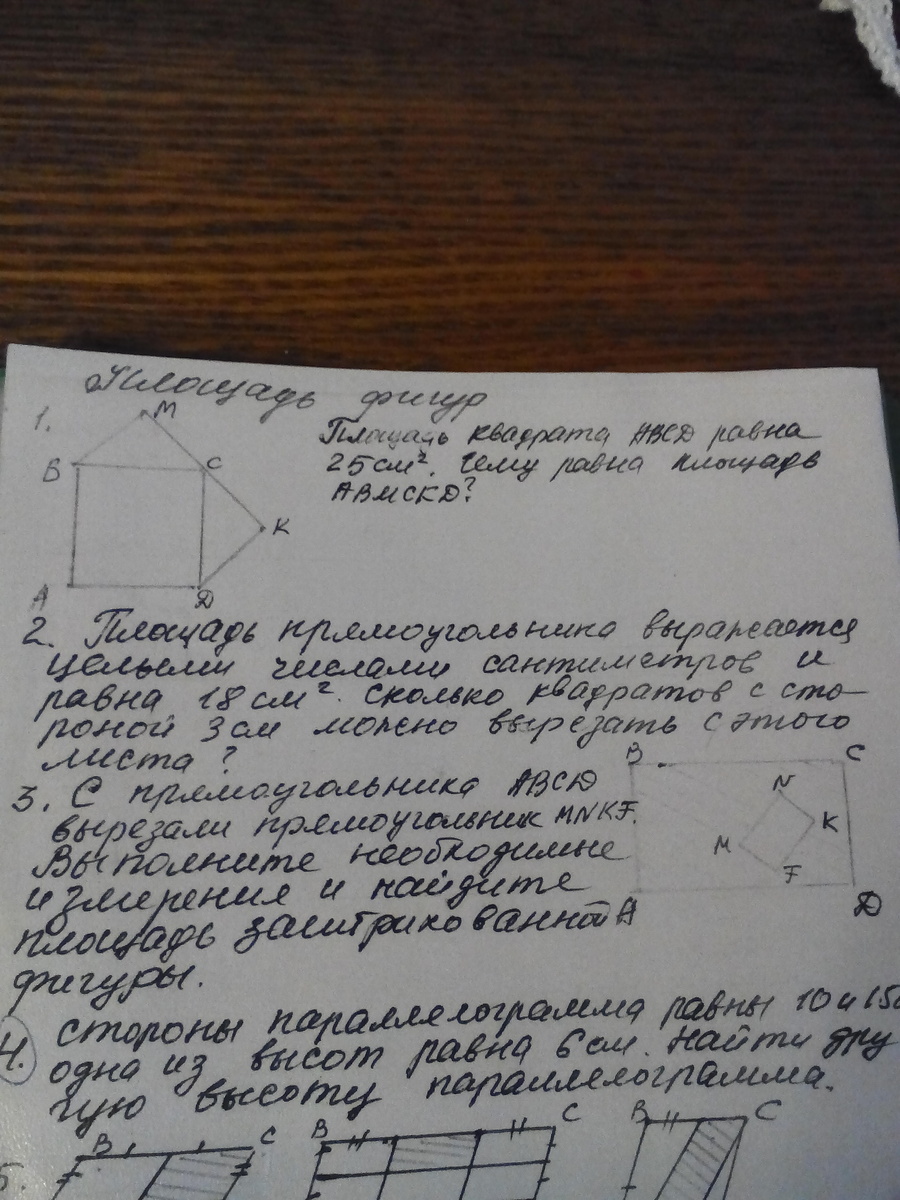 Площадь фигур
1.
M
B
C
K
A
D
Площадь квадрата ABCD равна
25 см². Чему равна площадь
ABMCKD?
2. Площадь прямоугольника выражается
целыми числами сантиметров и
равна 18 см². Сколько квадратов с сто-
роной 3 см можно вырезать с этого
листа?
3. С прямоугольника ABCD
вырезали прямоугольник MNKF.
Выполните необходимые
измерения и найдите
площадь заштрихованной
фигуры.
B
C
N
K
M
F
A
D
4. Стороны параллелограмма равны 10 и 15
одна из высот равна 6 см. Найти дру
гую высоту параллелограмма.
5.
B
C
B
C
B
C